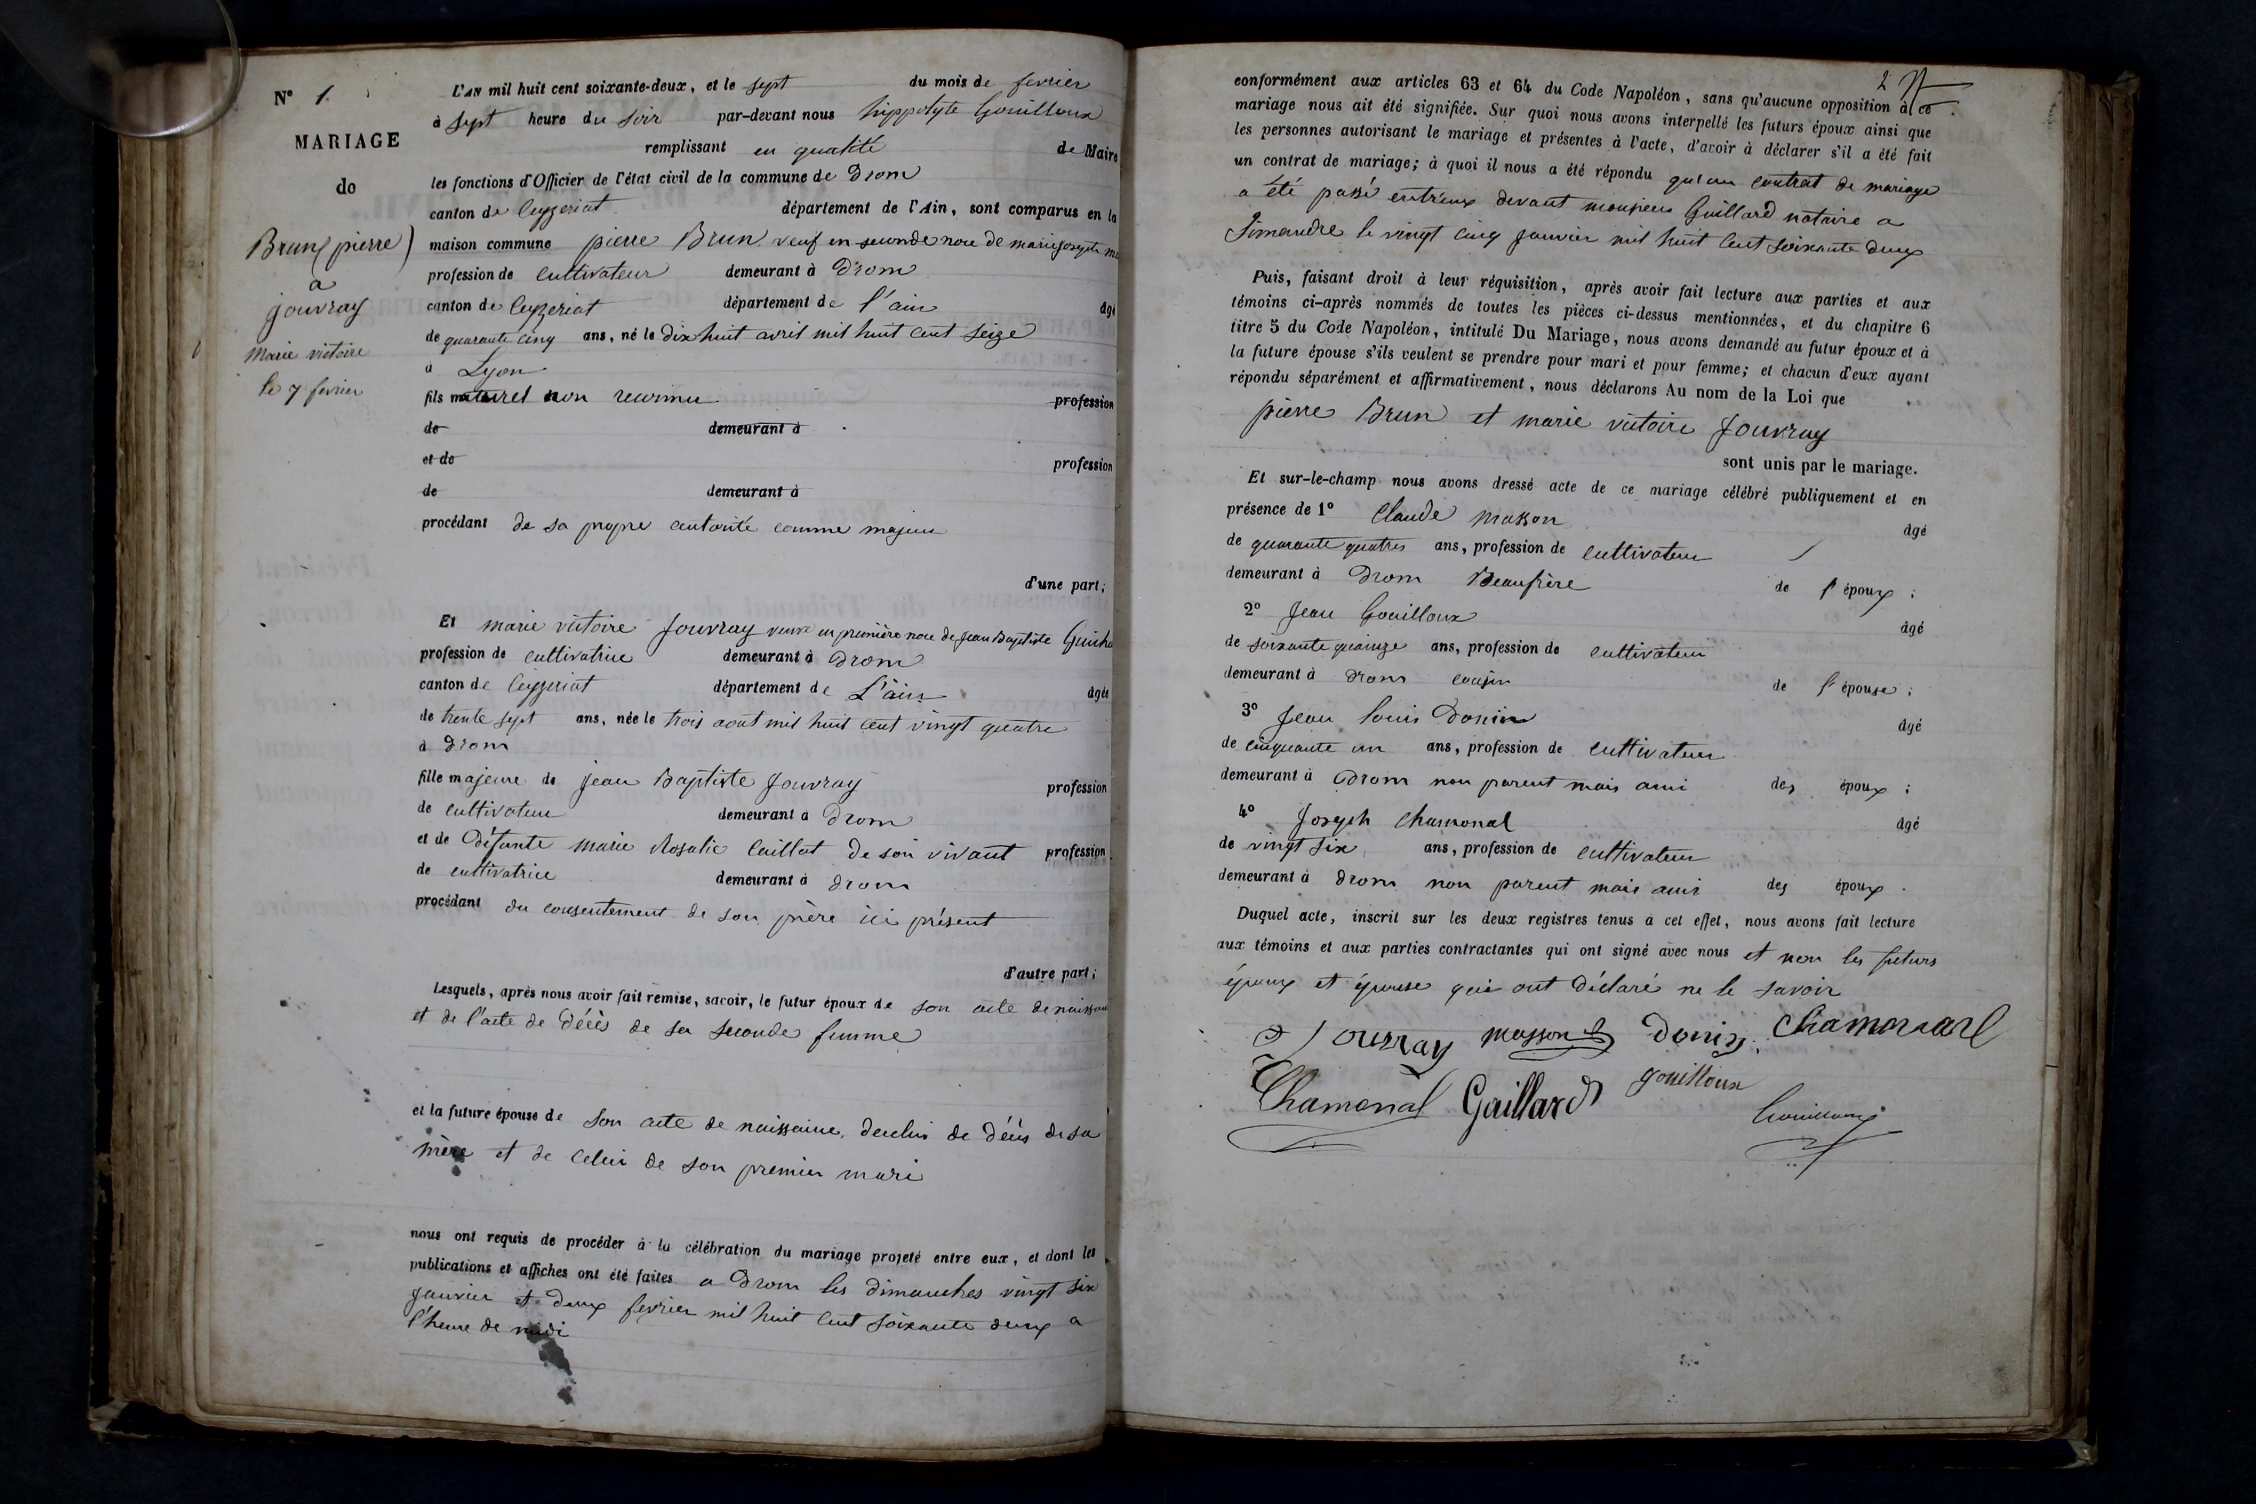 N° 1
MARIAGE
de
Brun (pierre)
a
jouvray
Marie victoire
le 7 fevrier
L'AN mil huit cent soixante-deux, et le sept du mois de fevrier
à sept heure du soir par-devant nous hippolyte Gouilloux
remplissant en qualité de Maire
les fonctions d'Officier de l'état civil de la commune de Drom
canton de Ceyzeriat département de l'Ain, sont comparus en la
maison commune pierre Brun veuf en seconde noce de marie josephe
profession de cultivateur demeurant à Drom
canton de Ceyzeriat département de l'ain âgé
de quarante cinq ans, né le dix huit avril mil huit cent seize
à Lyon
fils naturel non reconnu profession
de demeurant à
et de profession
de demeurant à
procédant de sa propre autorité comme majeur
d'une part;
Et marie victoire Jouvray veuve en première noce de Jean Baptiste
profession de cultivatrice demeurant à Drom
canton de Ceyzeriat département de L'ain âgée
de trente sept ans, née le trois aout mil huit cent vingt quatre
à Drom
fille majeure de Jean Baptiste Jouvray profession
de cultivateur demeurant à Drom
et de Défunte marie Rosalie Caillat de son vivant profession
de cultivatrice demeurant à drom
procédant du consentement de son père ici présent
d'autre part;
Lesquels, après nous avoir fait remise, savoir, le futur époux de son acte de naissance
et de l'acte de décès de sa seconde femme
et la future épouse de son acte de naissance, decelui de décès de sa
mère et de celui de son premier mari
nous ont requis de procéder à la célébration du mariage projeté entre eux, et dont les
publications et affiches ont été faites a Drom les dimanches vingt six
janvier et deux fevrier mil huit cent soixante deux a
l'heure de midi
2
conformément aux articles 63 et 64 du Code Napoléon, sans qu'aucune opposition à ce
mariage nous ait été signifiée. Sur quoi nous avons interpellé les futurs époux ainsi que
les personnes autorisant le mariage et présentes à l'acte, d'avoir à déclarer s'il a été fait
un contrat de mariage; à quoi il nous a été répondu qu'un contrat de mariage
a été passé entr'eux devant monsieur Guillard notaire a
Simandre le vingt cinq janvier mil huit cent soixante deux
Puis, faisant droit à leur réquisition, après avoir fait lecture aux parties et aux
témoins ci-après nommés de toutes les pièces ci-dessus mentionnées, et du chapitre 6
titre 5 du Code Napoléon, intitulé Du Mariage, nous avons demandé au futur époux et à
la future épouse s'ils veulent se prendre pour mari et pour femme; et chacun d'eux ayant
répondu séparément et affirmativement, nous déclarons Au nom de la Loi que
pierre Brun et marie victoire Jouvray
sont unis par le mariage.
Et sur-le-champ nous avons dressé acte de ce mariage célébré publiquement et en
présence de 1° Claude Masson âgé
de quarante quatres ans, profession de cultivateur
demeurant à Drom Beaufrère de l'époux;
2° Jean Gouilloux âgé
de soixante quainze ans, profession de cultivateur
demeurant à Drom cousin de l'épouse;
3° Jean louis Donin âgé
de cinquante un ans, profession de cultivateur
demeurant à Drom non parent mais ami des époux;
4° Joseph Chamonal âgé
de vingt six ans, profession de cultivateur
demeurant à Drom non parent mais ami des époux.
Duquel acte, inscrit sur les deux registres tenus à cet effet, nous avons fait lecture
aux témoins et aux parties contractantes qui ont signé avec nous et non les futurs
époux et épouse qui ont déclaré ne le savoir
Jouvray masson donin Chamonard
Chamonal Gaillard gouilloux
Gouilloux